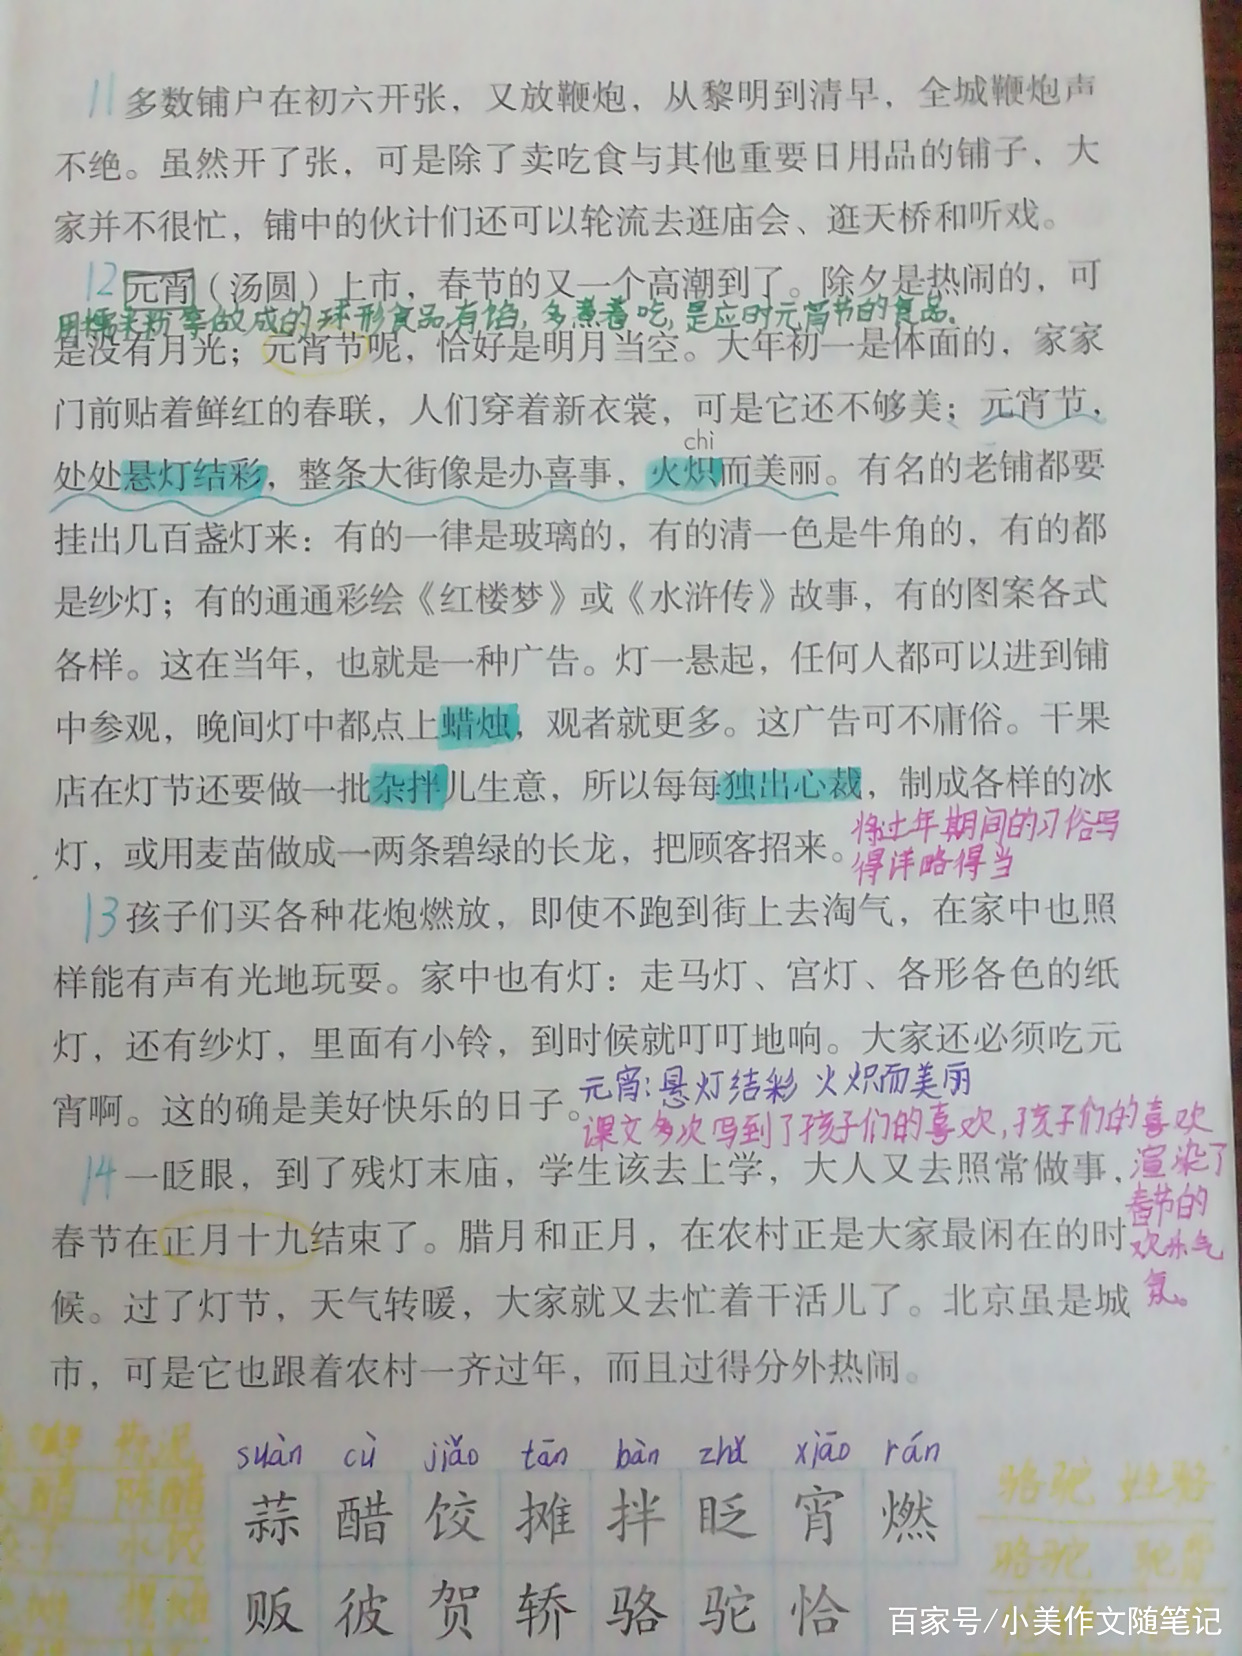 11 多数铺户在初六开张，又放鞭炮，从黎明到清早，全城鞭炮声
不绝。虽然开了张，可是除了卖吃食与其他重要日用品的铺子，大
家并不很忙，铺中的伙计们还可以轮流去逛庙会、逛天桥和听戏。
12 元宵（汤圆）上市，春节的又一个高潮到了。除夕是热闹的，可
用糯米粉等做成的球形食品，有馅，多煮着吃，是应时元宵节的食品。
是没有月光；元宵节呢，恰好是明月当空。大年初一是体面的，家家
门前贴着鲜红的春联，人们穿着新衣裳，可是它还不够美；元宵节，
chì
处处悬灯结彩，整条大街像是办喜事，火炽而美丽。有名的老铺都要
挂出几百盏灯来：有的一律是玻璃的，有的清一色是牛角的，有的都
是纱灯；有的通通彩绘《红楼梦》或《水浒传》故事，有的图案各式
各样。这在当年，也就是一种广告。灯一悬起，任何人都可以进到铺
中参观，晚间灯中都点上蜡烛，观者就更多。这广告可不庸俗。干果
店在灯节还要做一批杂拌儿生意，所以每每独出心裁，制成各样的冰
灯，或用麦苗做成一两条碧绿的长龙，把顾客招来。
将过年期间的习俗写
得详略得当
13 孩子们买各种花炮燃放，即使不跑到街上去淘气，在家中也照
样能有声有光地玩耍。家中也有灯：走马灯、宫灯、各形各色的纸
灯，还有纱灯，里面有小铃，到时候就叮叮地响。大家还必须吃元
宵啊。这的确是美好快乐的日子。
元宵：悬灯结彩 火炽而美丽
课文多次写到了孩子们的喜欢，孩子们的喜欢
渲染了
春节的
欢乐气
氛。
14 一眨眼，到了残灯末庙，学生该去上学，大人又去照常做事，
春节在正月十九结束了。腊月和正月，在农村正是大家最闲在的时
候。过了灯节，天气转暖，大家就又去忙着干活儿了。北京虽是城
市，可是它也跟着农村一齐过年，而且过得分外热闹。
suàn cù jiǎo tān bàn zhǎ xiāo rán
蒜 醋 饺 摊 拌 眨 宵 燃
贩 彼 贺 轿 骆 驼 恰
陈醋
水饺
骆驼 姓骆
骆驼 驼背
百家号/小美作文随笔记